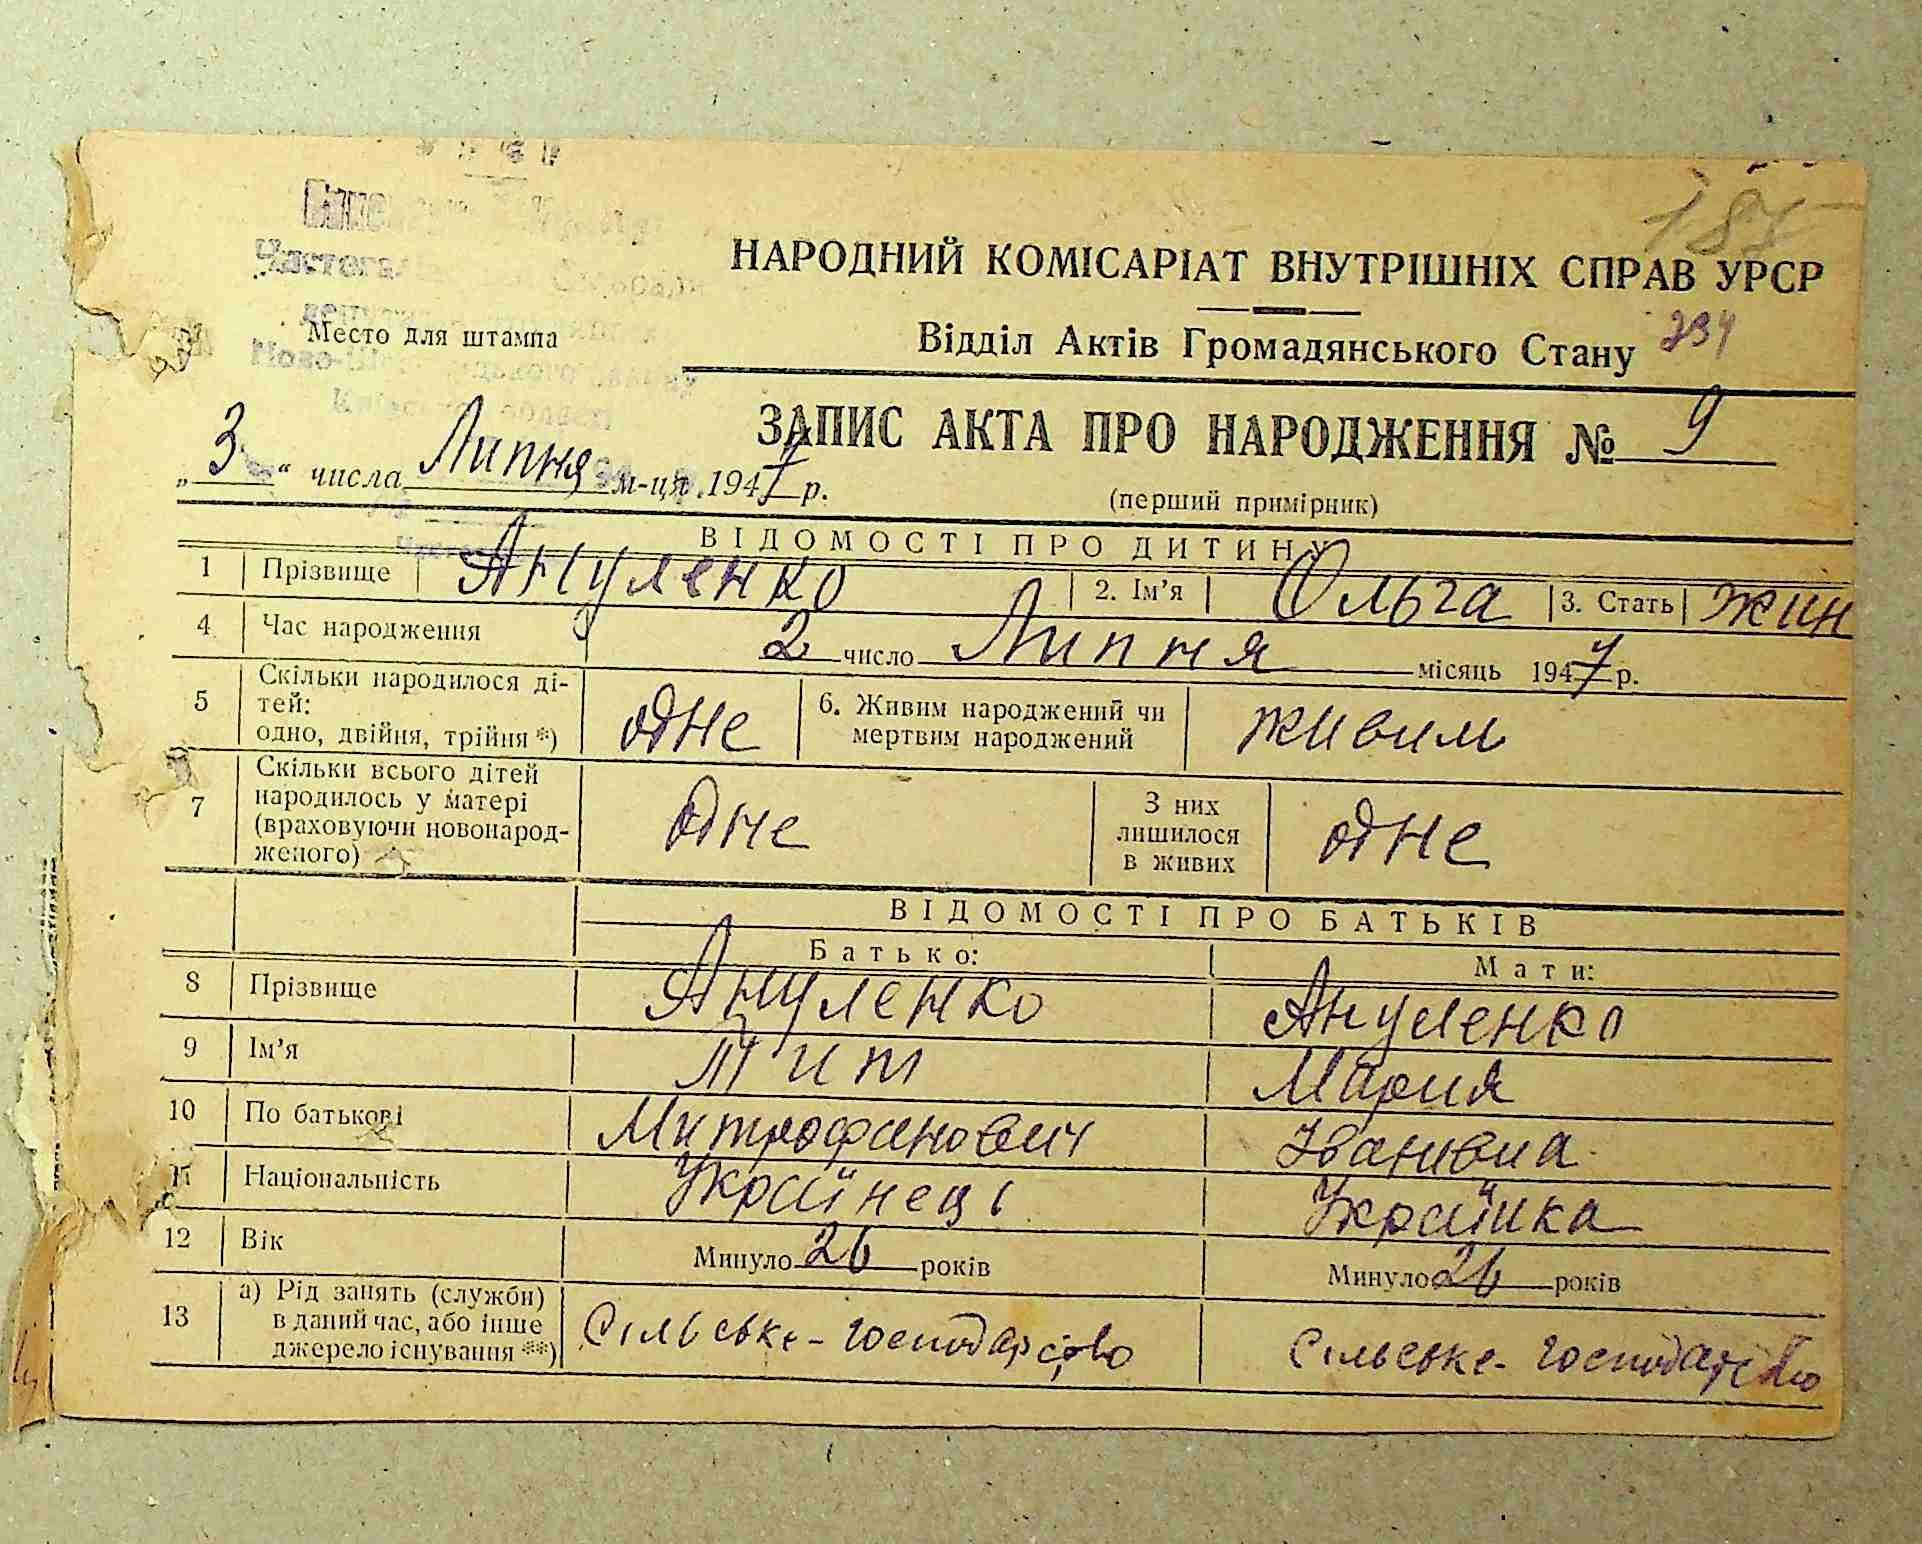 187
НАРОДНИЙ КОМІСАРІАТ ВНУТРІШНІХ СПРАВ УРСР
Место для штампа
Відділ Актів Громадянського Стану 234
ЗАПИС АКТА ПРО НАРОДЖЕННЯ № 9
„3“ числа Липня м-ця 1947 р.
(перший примірник)
ВІДОМОСТІ ПРО ДИТИНУ
1 Прізвище Ануленко 2. Ім’я Ольга 3. Стать жин
4 Час народження 2 число Липня місяць 1947 р.
5 Скільки народилося ді-
тей:
одно, двійня, трійня *) одне 6. Живим народжений чи
мертвим народжений живим
7 Скільки всього дітей
народилось у матері
(враховуючи новонарод-
женого) одне З них
лишилося
в живих одне
ВІДОМОСТІ ПРО БАТЬКІВ
Батько: Мати:
8 Прізвище Ануленко Ануленко
9 Ім’я Тит Мария
10 По батькові Митрофанович Іванивна
11 Національність Українець Українка
12 Вік Минуло 26 років Минуло 26 років
13 а) Рід занять (служби)
в даний час, або інше
джерело існування **) Сільське-господарство Сільське-господарство